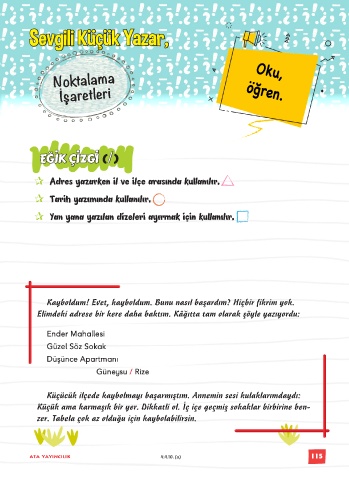 Sevgili Küçük Yazar,
Noktalama
İşaretleri
Oku,
öğren.
EĞİK ÇİZGİ (/)
Adres yazarken il ve ilçe arasında kullanılır.
Tarih yazımında kullanılır.
Yan yana yazılan dizeleri ayırmak için kullanılır.
Kayboldum! Evet, kayboldum. Bunu nasıl başardım? Hiçbir fikrim yok.
Elimdeki adrese bir kere daha baktım. Kâğıtta tam olarak şöyle yazıyordu:
Ender Mahallesi
Güzel Söz Sokak
Düşünce Apartmanı
Güneysu / Rize
Küçücük ilçede kaybolmayı başarmıştım. Annemin sesi kulaklarımdaydı:
Küçük ama karmaşık bir yer. Dikkatli ol. İç içe geçmiş sokaklar birbirine ben-
zer. Tabela çok az olduğu için kaybolabilirsin.
ATA YAYINCILIK
115